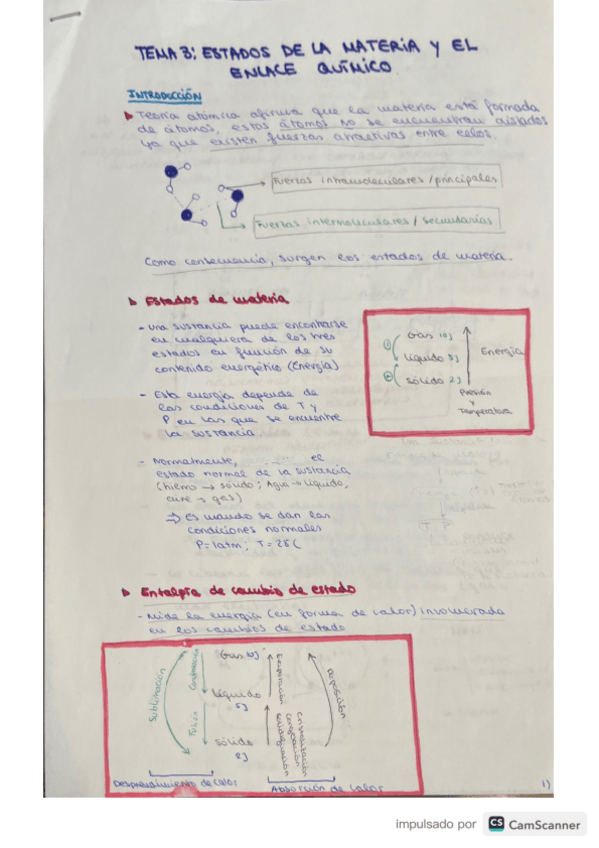 TEMA 3: ESTADOS DE LA MATERIA Y EL
ENLACE QUÍMICO
INTRODUCCIÓN
Teoría atómica afirma que la materia está formada
de átomos, estos átomos no se encuentran aislados
ya que existen fuerzas atractivas entre ellos.
Fuerzas intramoleculares / principales
Fuerzas intermoleculares / secundarias
Como consecuencia, surgen los estados de materia.
Estados de materia
- Una sustancia puede encontrarse
en cualquiera de los tres
estados en función de su
contenido energético (Energía)
- Esta energía depende de
las condiciones de T y
P en las que se encuentre
la sustancia.
- Normalmente, el
estado normal de la sustancia
(hierro → sólido; Agua → líquido,
aire → gas)
⇒ Es cuando se dan las
condiciones normales
P=1atm; T=25C
Gas 10J
líquido 5J
sólido 2J
Energía
Presión
y
Temperatura
Entalpía de cambio de estado
- Mide la energía (en forma de calor) involucrada
en los cambios de estado
Sublimación
Condensación
Fusión
Gas 10J
líquido
5J
sólido
2J
Evaporación
Solidificación
Congelación
Cristalización
Deposición
Desprendimiento de calor
Absorción de calor
1)
impulsado por CS CamScanner